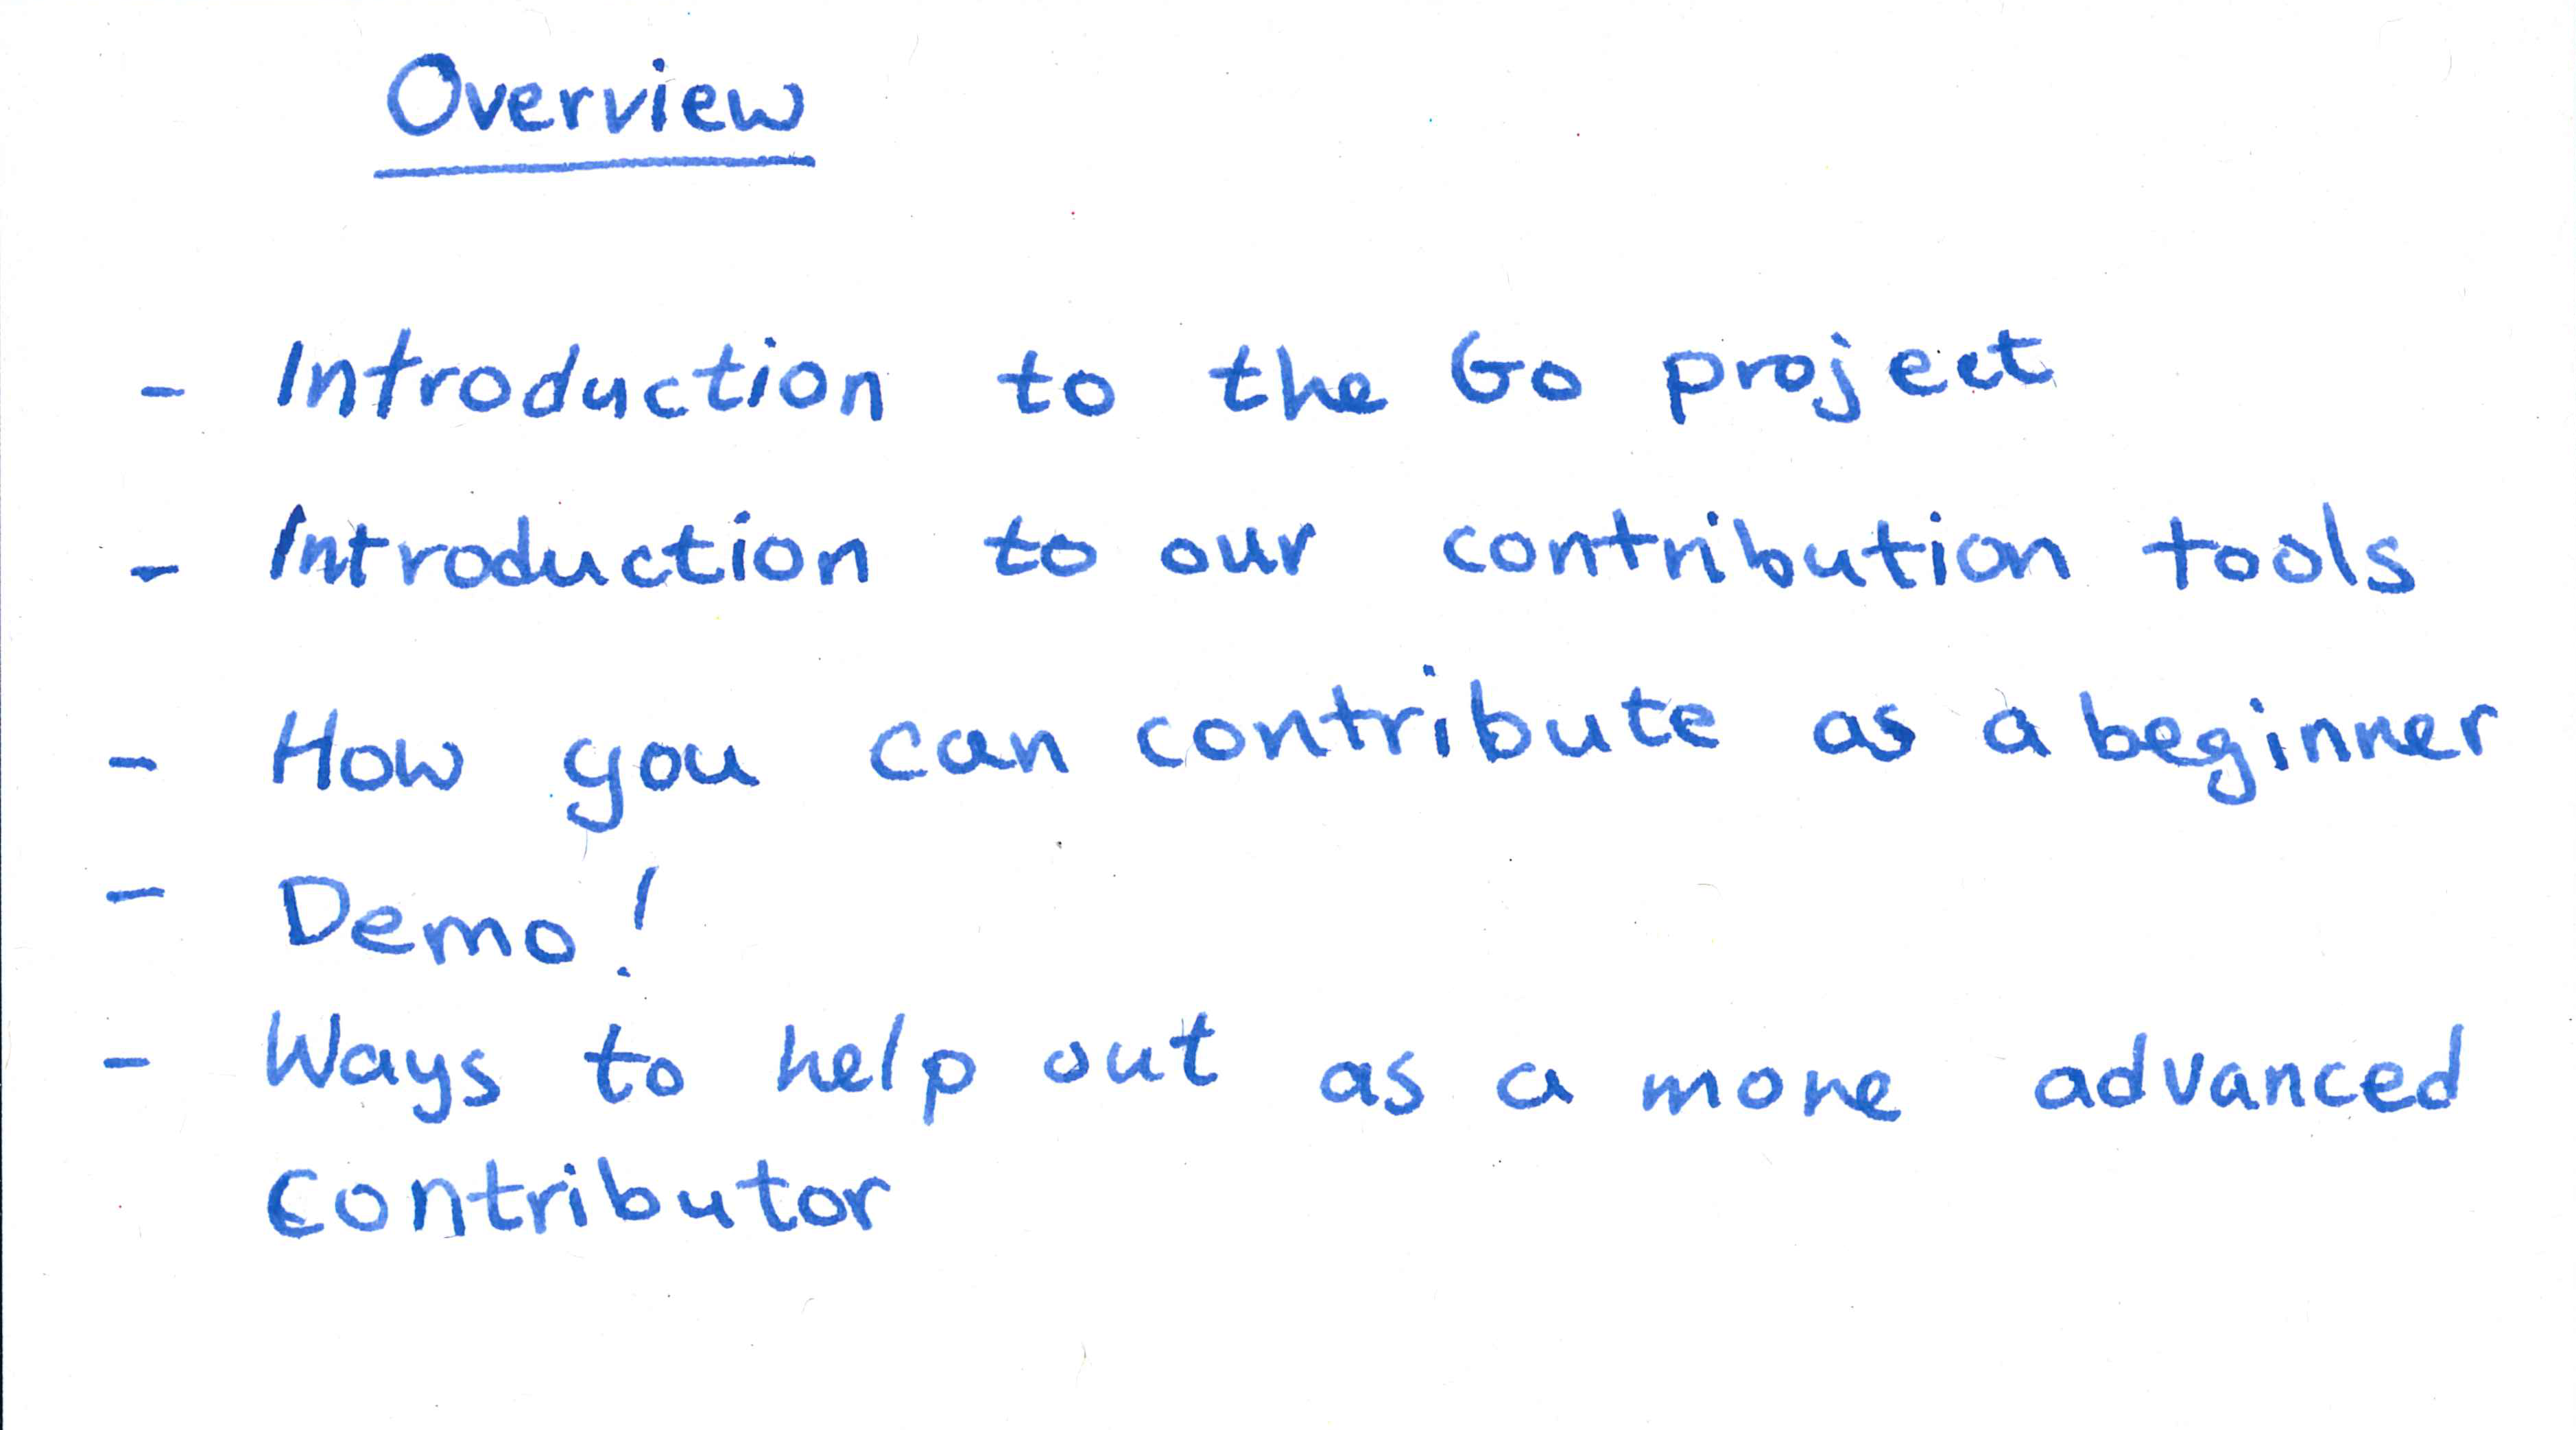 Overview
- Introduction to the Go project
- Introduction to our contribution tools
- How you can contribute as a beginner
- Demo!
- Ways to help out as a more advanced
contributor